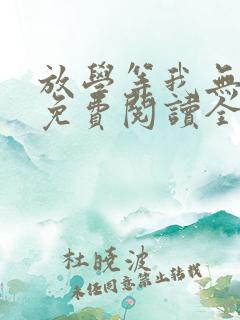 放學等我無
免費閱讀全
杜曉波
未任同意禁止转載